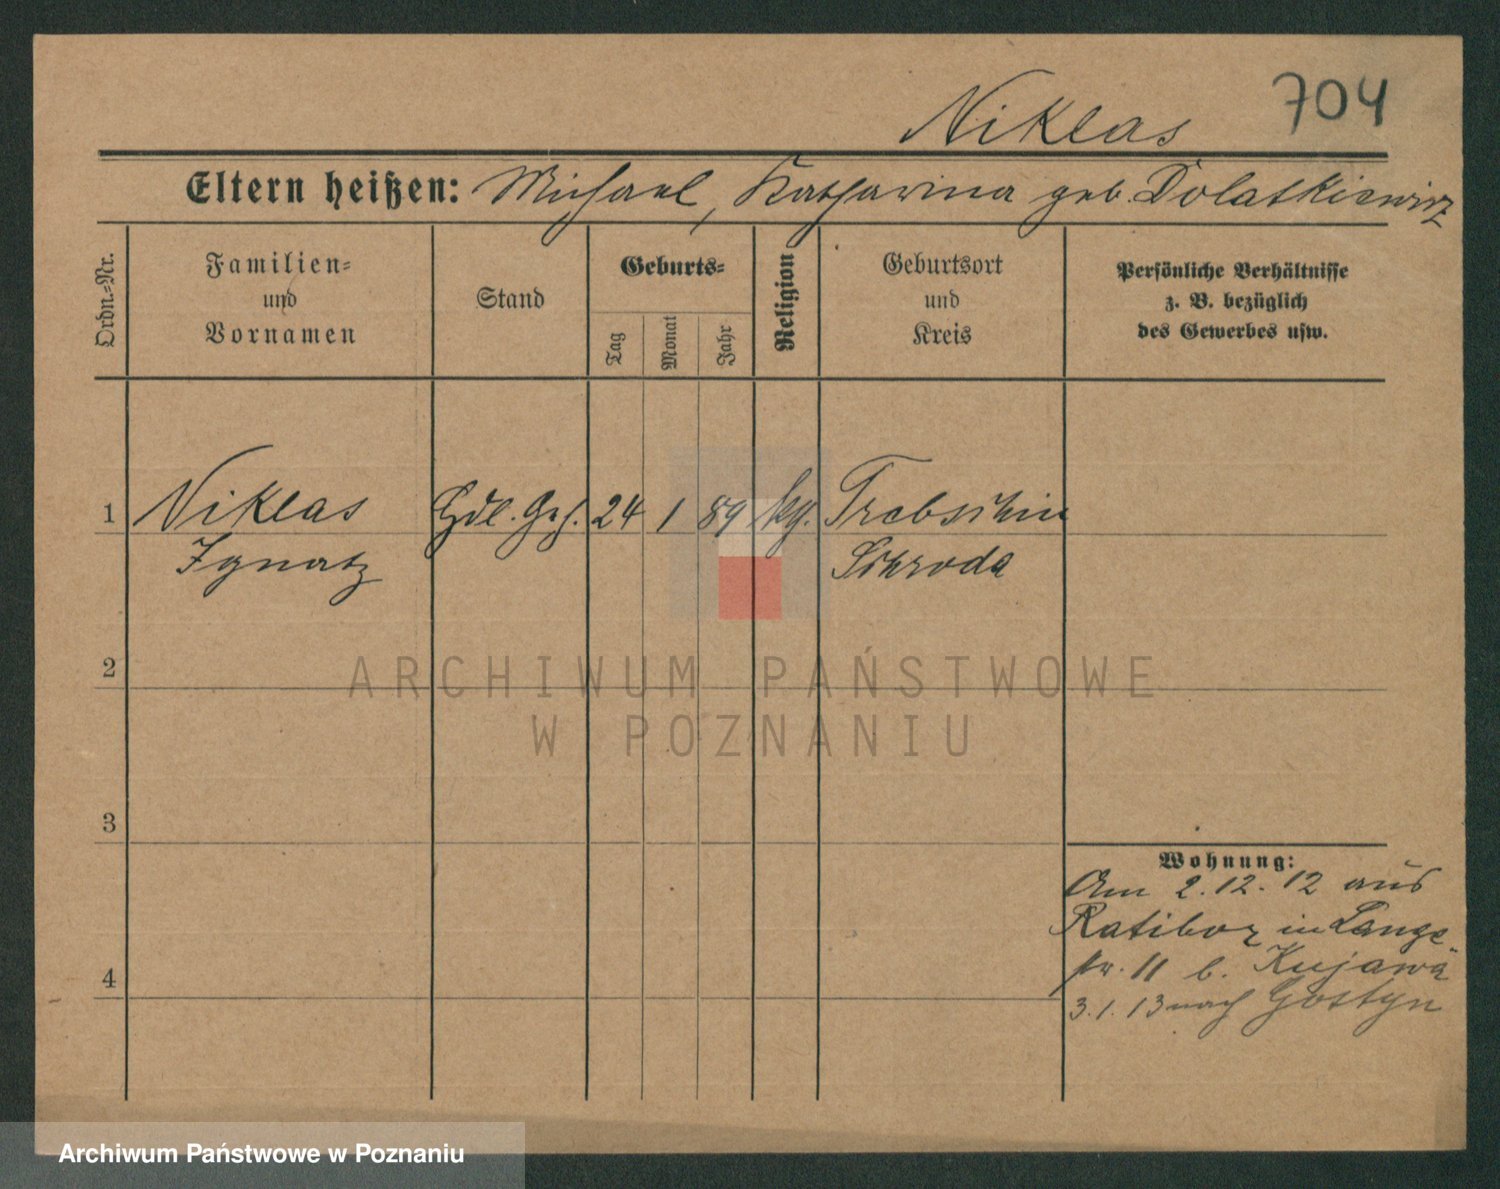 704
Niklas
Eltern heißen: Michael, Katharina geb. Dolatkiewicz
Ordn.-Nr.
Familien-
und
Vornamen
Stand
Geburts-
Tag
Monat
Jahr
Religion
Geburtsort
und
Kreis
Persönliche Verhältnisse
z. B. bezüglich
des Gewerbes usw.
1 Niklas Hdl. Geh. 24 1 89 kg. Trebschin
Ignatz Schroda
2
3
4
Wohnung:
Am 2.12.12 aus
Ratibor in Lange-
str. 11 b. Kujawa
3.1.13 nach Gostyn
ARCHIWUM PAŃSTWOWE
W POZNANIU
Archiwum Państwowe w Poznaniu